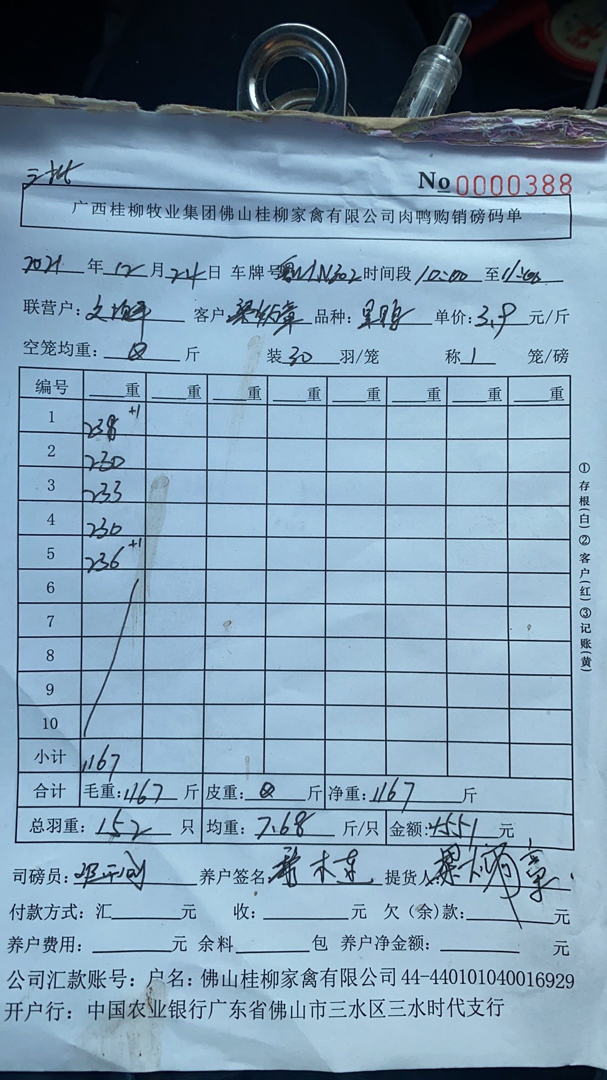 No 0000388
广西桂柳牧业集团佛山桂柳家禽有限公司肉鸭购销磅码单
2021年12月24日 车牌号 时间段10:00至11:00
联营户: 客户 品种: 单价:3.9元/斤
空笼均重:0斤 装30羽/笼 称1笼/磅
编号 重 重 重 重 重 重 重 重
1 238 +1
2 230
3 233
4 230
5 236 +1
6
7
8
9
10
小计 1167
合计 毛重:1167斤 皮重:0斤 净重:1167斤
总羽重:152只 均重:7.68斤/只 金额:4551元
司磅员: 养户签名: 提货人:
付款方式:汇 元 收: 元 欠(余)款: 元
养户费用: 元 余料 包 养户净金额: 元
公司汇款账号:户名:佛山桂柳家禽有限公司44-440101040016929
开户行:中国农业银行广东省佛山市三水区三水时代支行
①存根(白)②客户(红)③记账(黄)